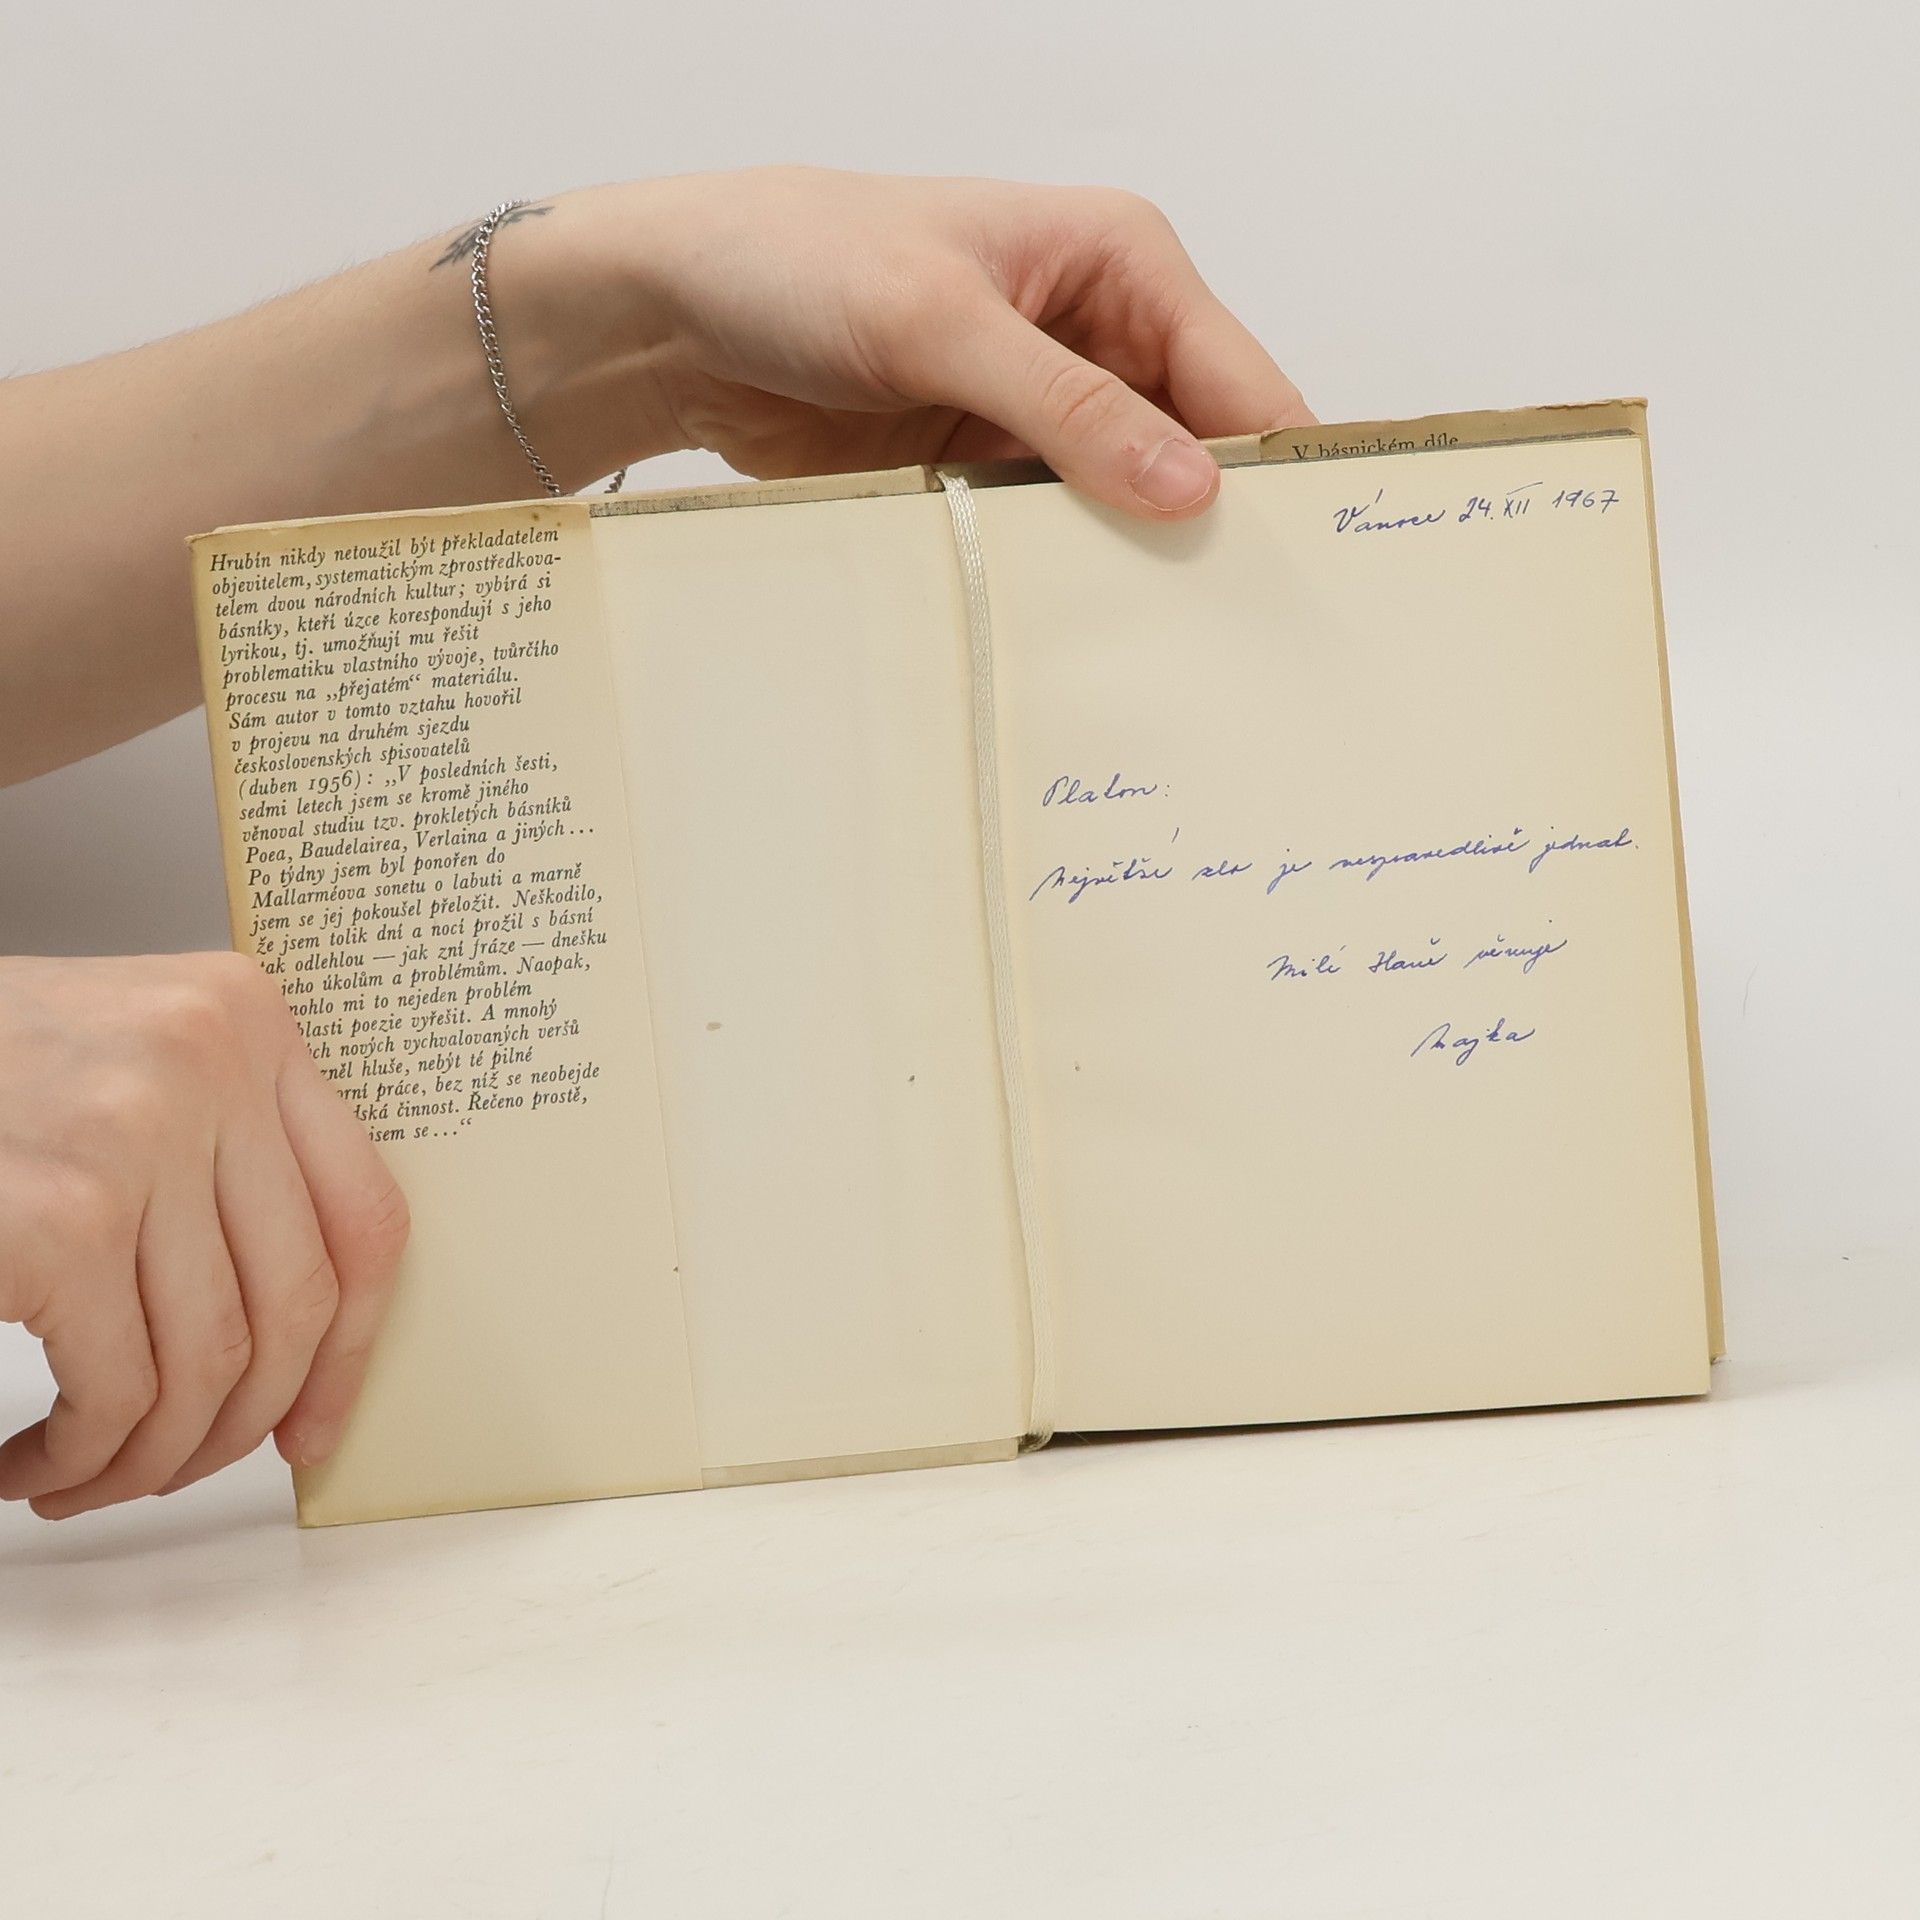 Hrubín nikdy netoužil být překladatelem
objevitelem, systematickým zprostředkova-
telem dvou národních kultur; vybírá si
básníky, kteří úzce korespondují s jeho
lyrikou, tj. umožňují mu řešit
problematiku vlastního vývoje, tvůrčího
procesu na „přejatém“ materiálu.
Sám autor v tomto vztahu hovořil
v projevu na druhém sjezdu
československých spisovatelů
(duben 1956): „V posledních šesti,
sedmi letech jsem se kromě jiného
věnoval studiu tzv. prokletých básníků
Poea, Baudelairea, Verlaina a jiných...
Po týdny jsem byl ponořen do
Mallarméova sonetu o labuti a marně
jsem se jej pokoušel přeložit. Neškodilo,
že jsem tolik dní a nocí prožil s básní
tak odlehlou — jak zní fráze — dnešku
jeho úkolům a problémům. Naopak,
mohlo mi to nejeden problém
blasti poezie vyřešit. A mnohý
ých nových vychvalovaných veršů
zněl hluše, nebýt té pilné
orní práce, bez níž se neobejde
dská činnost. Řečeno prostě,
jsem se...“
V básnickém díle
Vánoce 24. XII 1967
Platon:
Největší zlo je nespravedlivě jednat.
Milé Haně věnuje
Majka